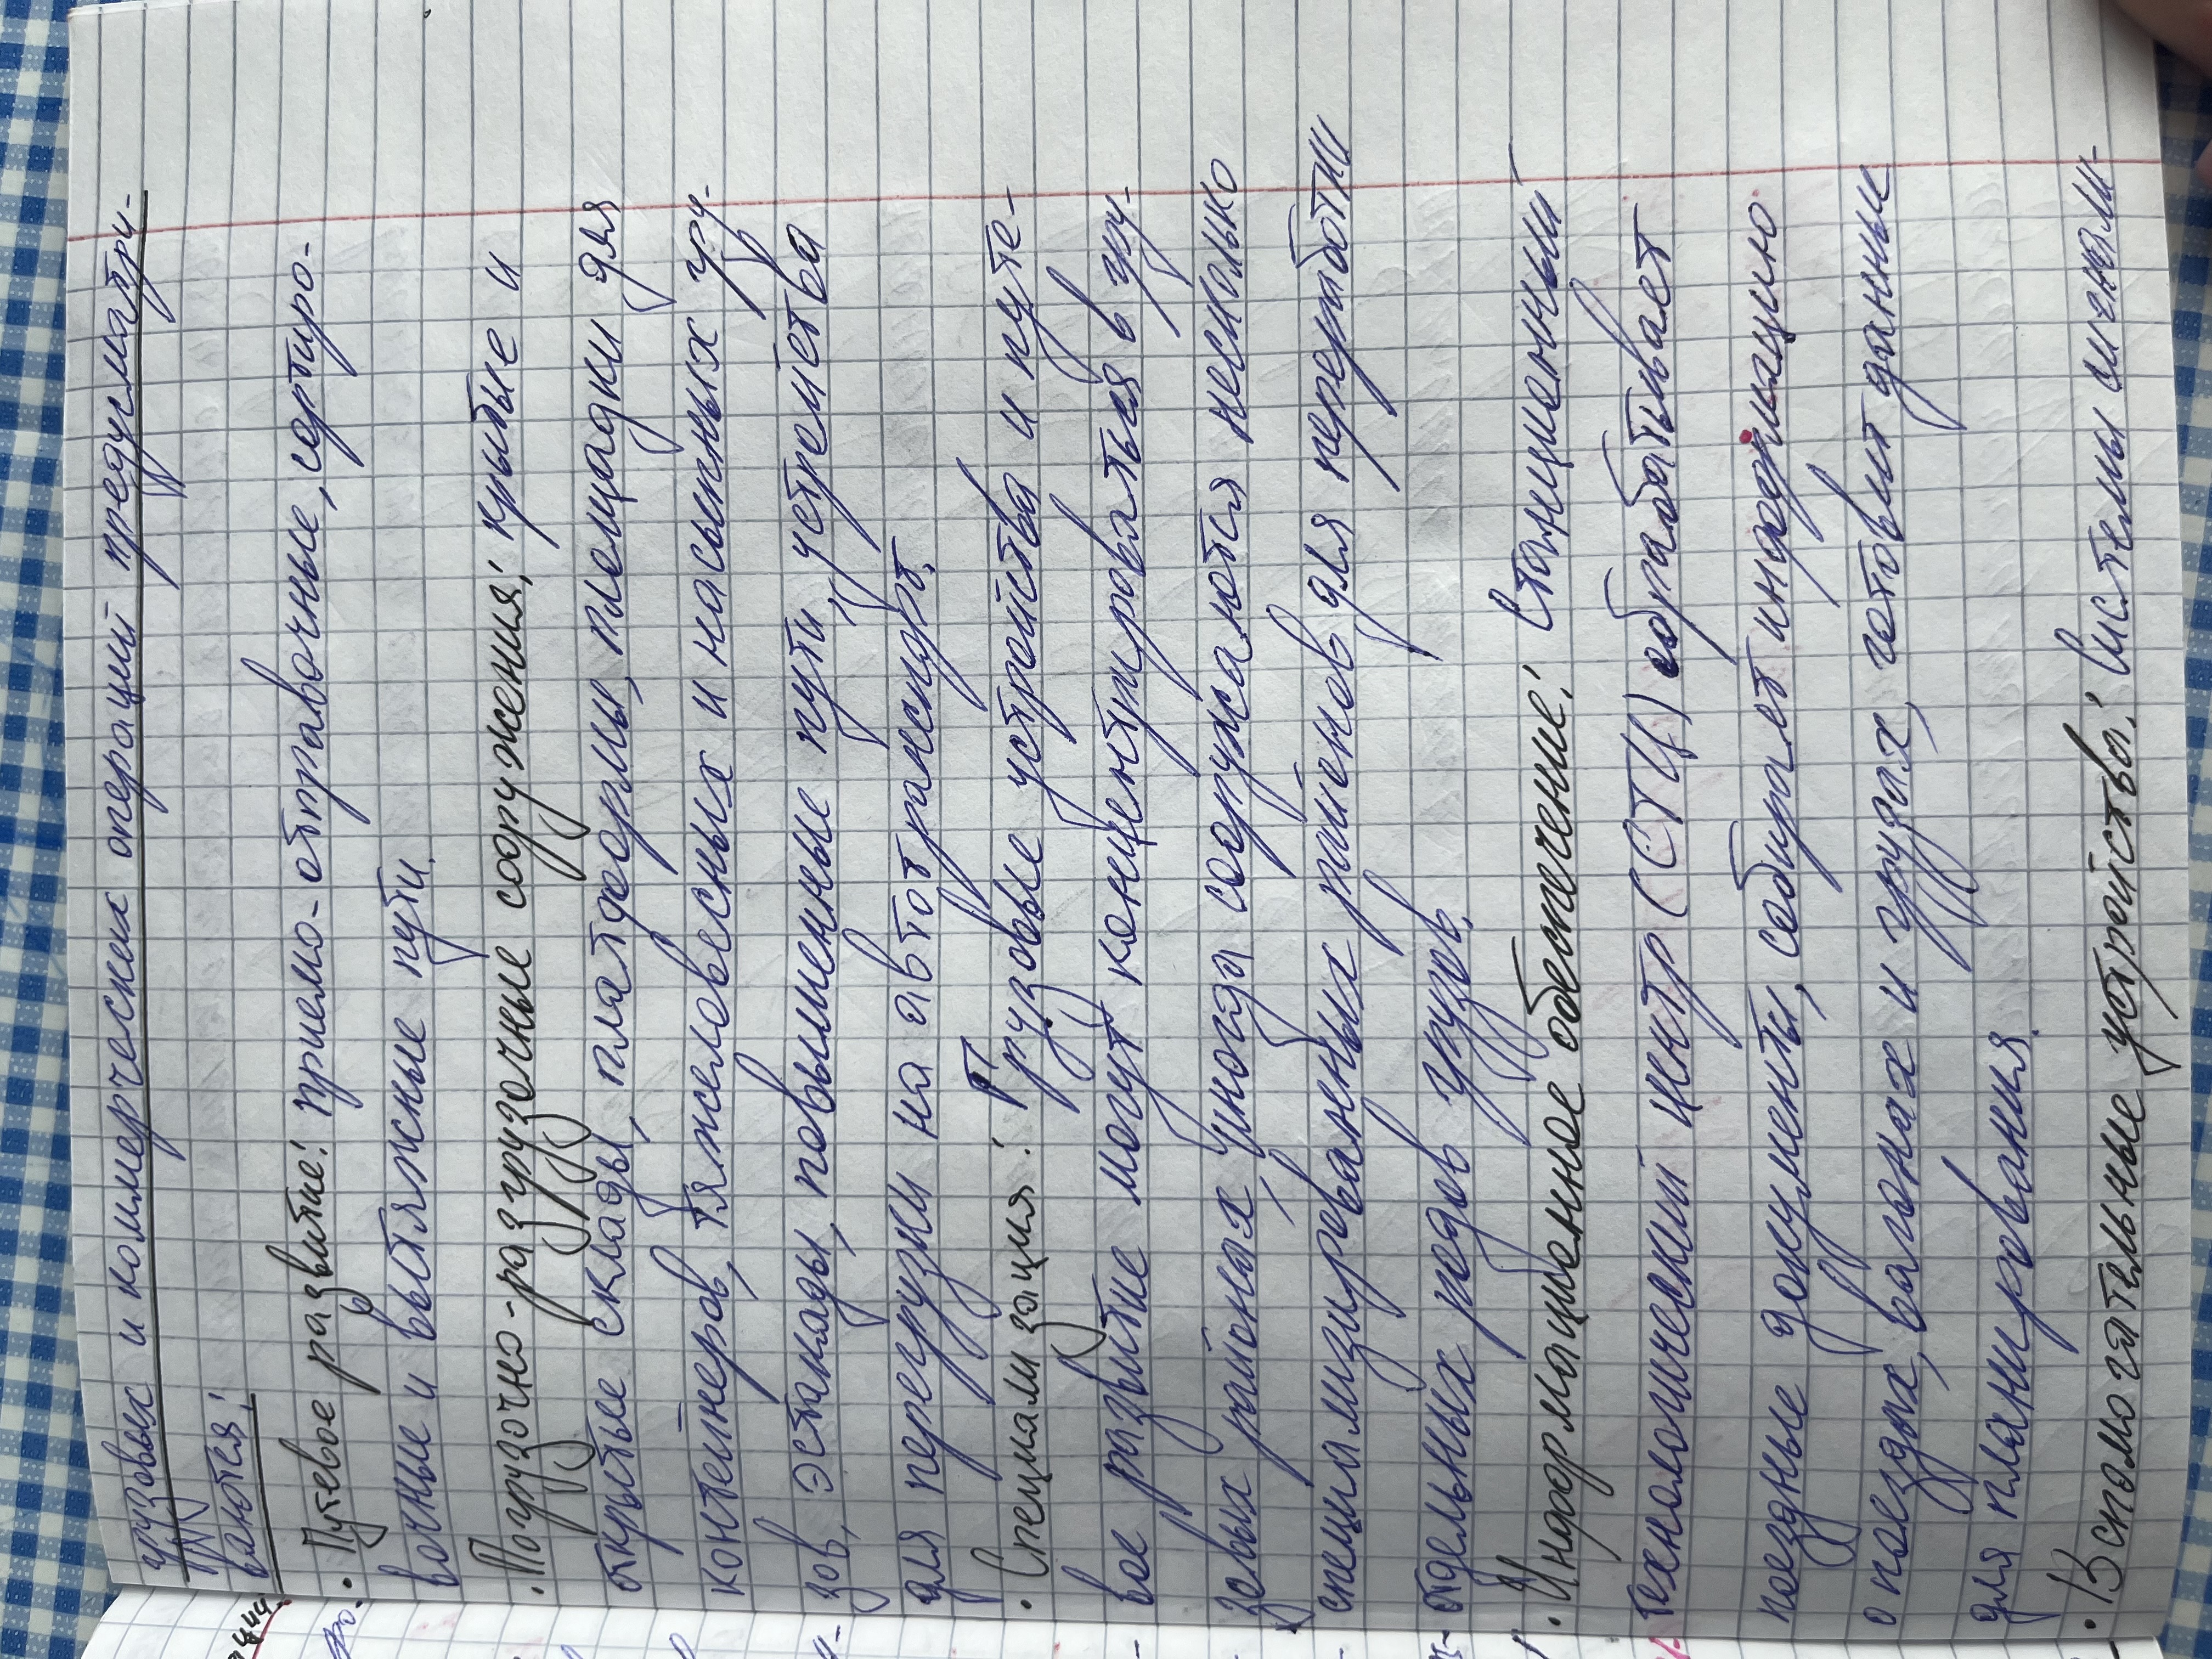 грузовых и коммерческих операций предусматри-
ваются:
· Путевое развитие: приемо-отправочные, сортиро-
вочные и вытяжные пути.
· Погрузочно-разгрузочные сооружения: крытые и
открытые склады, платформы, площадки для
контейнеров, тяжеловесных и насыпных гру-
зов, эстакады, повышенные пути, устройства
для перегрузки на автотранспорт.
· Специализация: Грузовые устройства и путе-
вое развитие могут концентрироваться в гру-
зовых районах, иногда сооружаются несколько
специализированных районов для переработки
отдельных родов грузов.
· Информационное обеспечение: Станционный
технологический центр (СТЦ) обрабатывает
поездные документы, собирает информацию
о поездах, вагонах и грузах, готовит данные
для планирования.
· Вспомогательные устройства: Системы